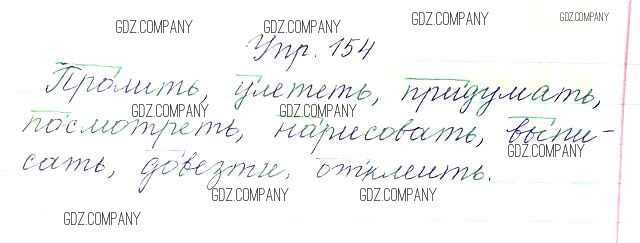 GDZ.COMPANY GDZ.COMPANY GDZ.COMPANY GDZ.COMPANY
Упр. 154
GDZ.COMPANY GDZ.COMPANY GDZ.COMPANY
Пролить, улететь, придумать,
GDZ.COMPANY GDZ.COMPANY
посмотреть, нарисовать, выпи-
GDZ.COMPANY
сать, довезти, отклеить.
GDZ.COMPANY GDZ.COMPANY
GDZ.COMPANY